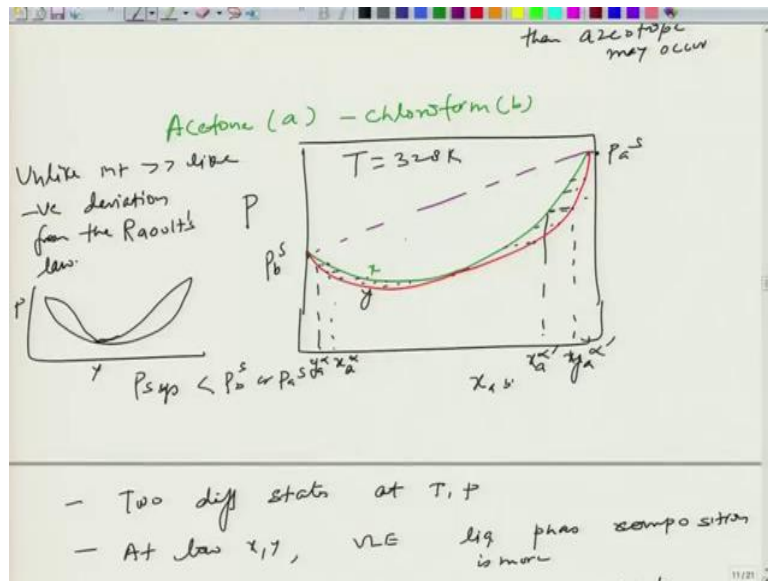 then azeotrope
may occur
Acetone (a) - chloroform (b)
Unlike int >> like
-ve deviation
from the Raoult's
law.
T = 328K
P
Pₐˢ
P_bˢ
x
y
P
y
Psys < P_bˢ or Pₐˢ
yₐᵅ xₐᵅ
xₐᵅ'
yₐᵅ'
- Two diff states at T, P
- At low x, y, VLE liq phas composition
is more
11/21